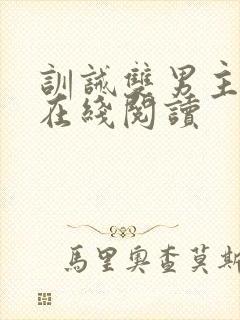 訓誡雙男主
在綫閱讀
馬里奧查莫斯